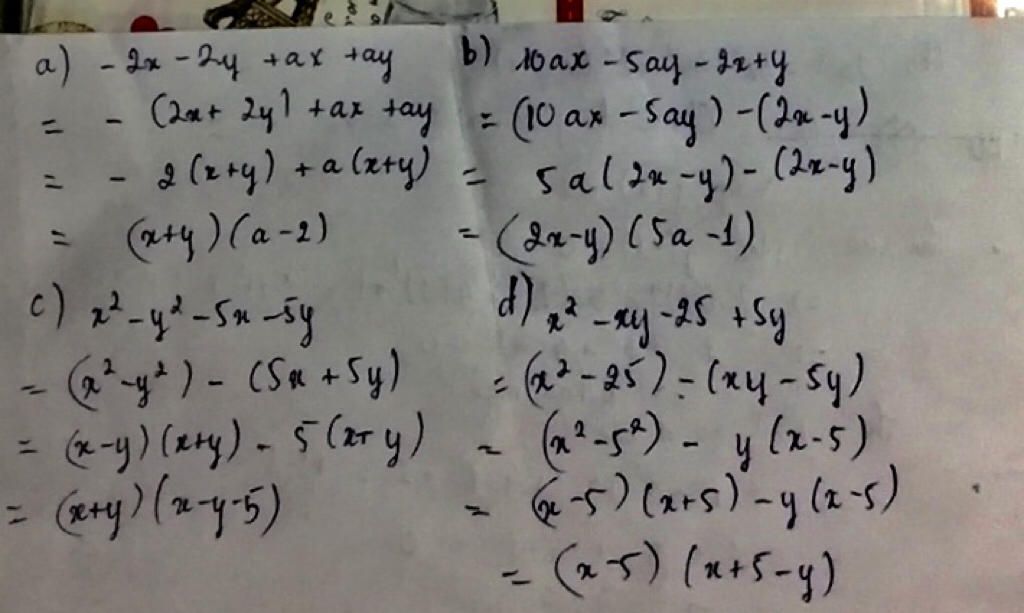 a) -2x - 2y + ax + ay
= - (2x + 2y) + ax + ay
= - 2(x+y) + a(x+y)
= (x+y)(a-2)
b) 10ax - 5ay - 2x + y
= (10ax - 5ay) - (2x - y)
= 5a(2x - y) - (2x - y)
= (2x-y)(5a-1)
c) x² - y² - 5x - 5y
= (x² - y²) - (5x + 5y)
= (x-y)(x+y) - 5(x+y)
= (x+y)(x-y-5)
d) x² - xy - 25 + 5y
= (x² - 25) - (xy - 5y)
= (x² - 5²) - y(x-5)
= (x-5)(x+5) - y(x-5)
= (x-5)(x+5-y)